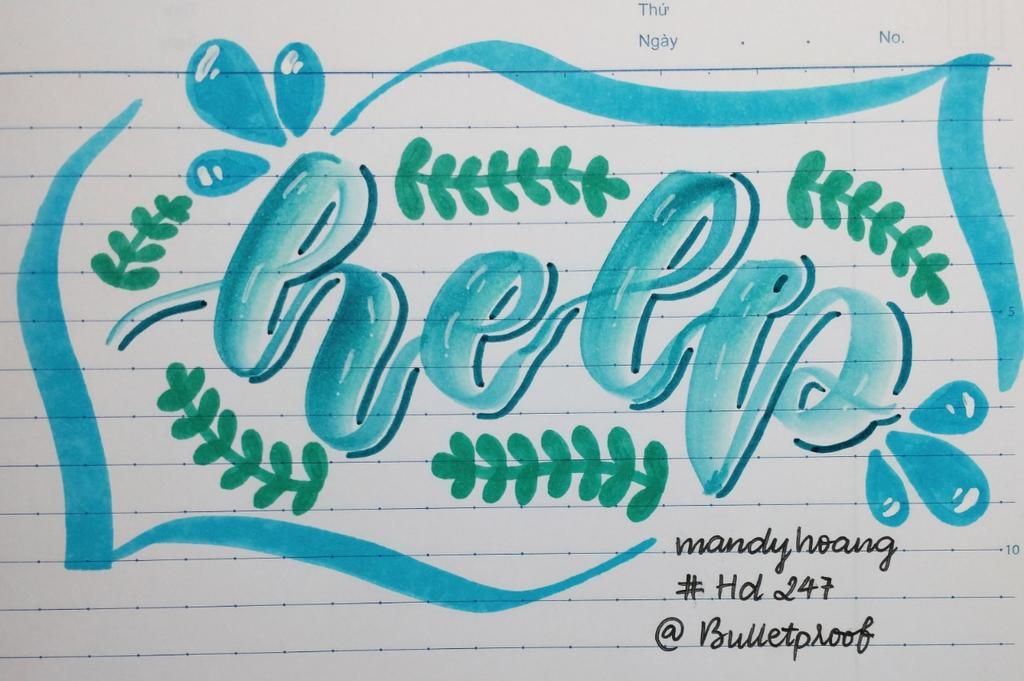 Thứ
Ngày . . No.
help
5
mandyhoang
# Hd 247
@ Bulletproof
10